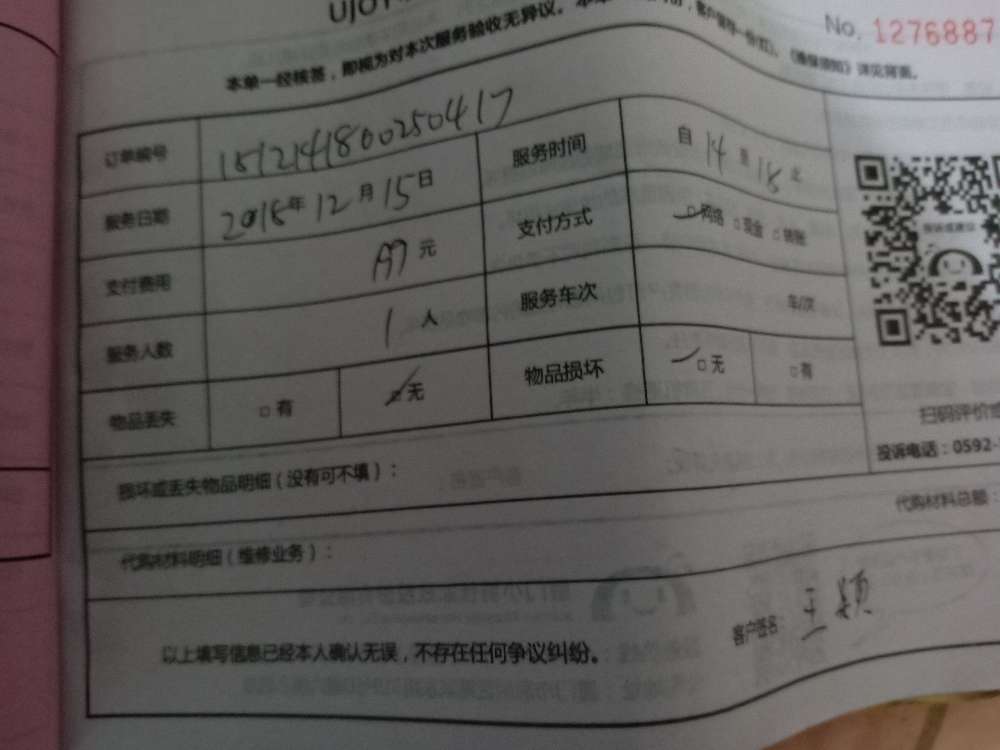 No. 1276887
本单一经核签，即视为对本次服务验收无异议。
《维保须知》详见背面。
订单编号 151214180025​0417
服务时间 自 14 至 18 止
服务日期 2018年 12 月 15 日
支付方式 □网络 □现金 □转账
支付费用 元
服务人数 1 人
服务车次 车/次
物品丢失 □有 □无
物品损坏 □无 □有
扫码评价
投诉电话：0592-
损坏或丢失物品明细（没有可不填）：
代购材料总额：
代购材料明细（维修业务）：
以上填写信息已经本人确认无误，不存在任何争议纠纷。
客户签名 王颖